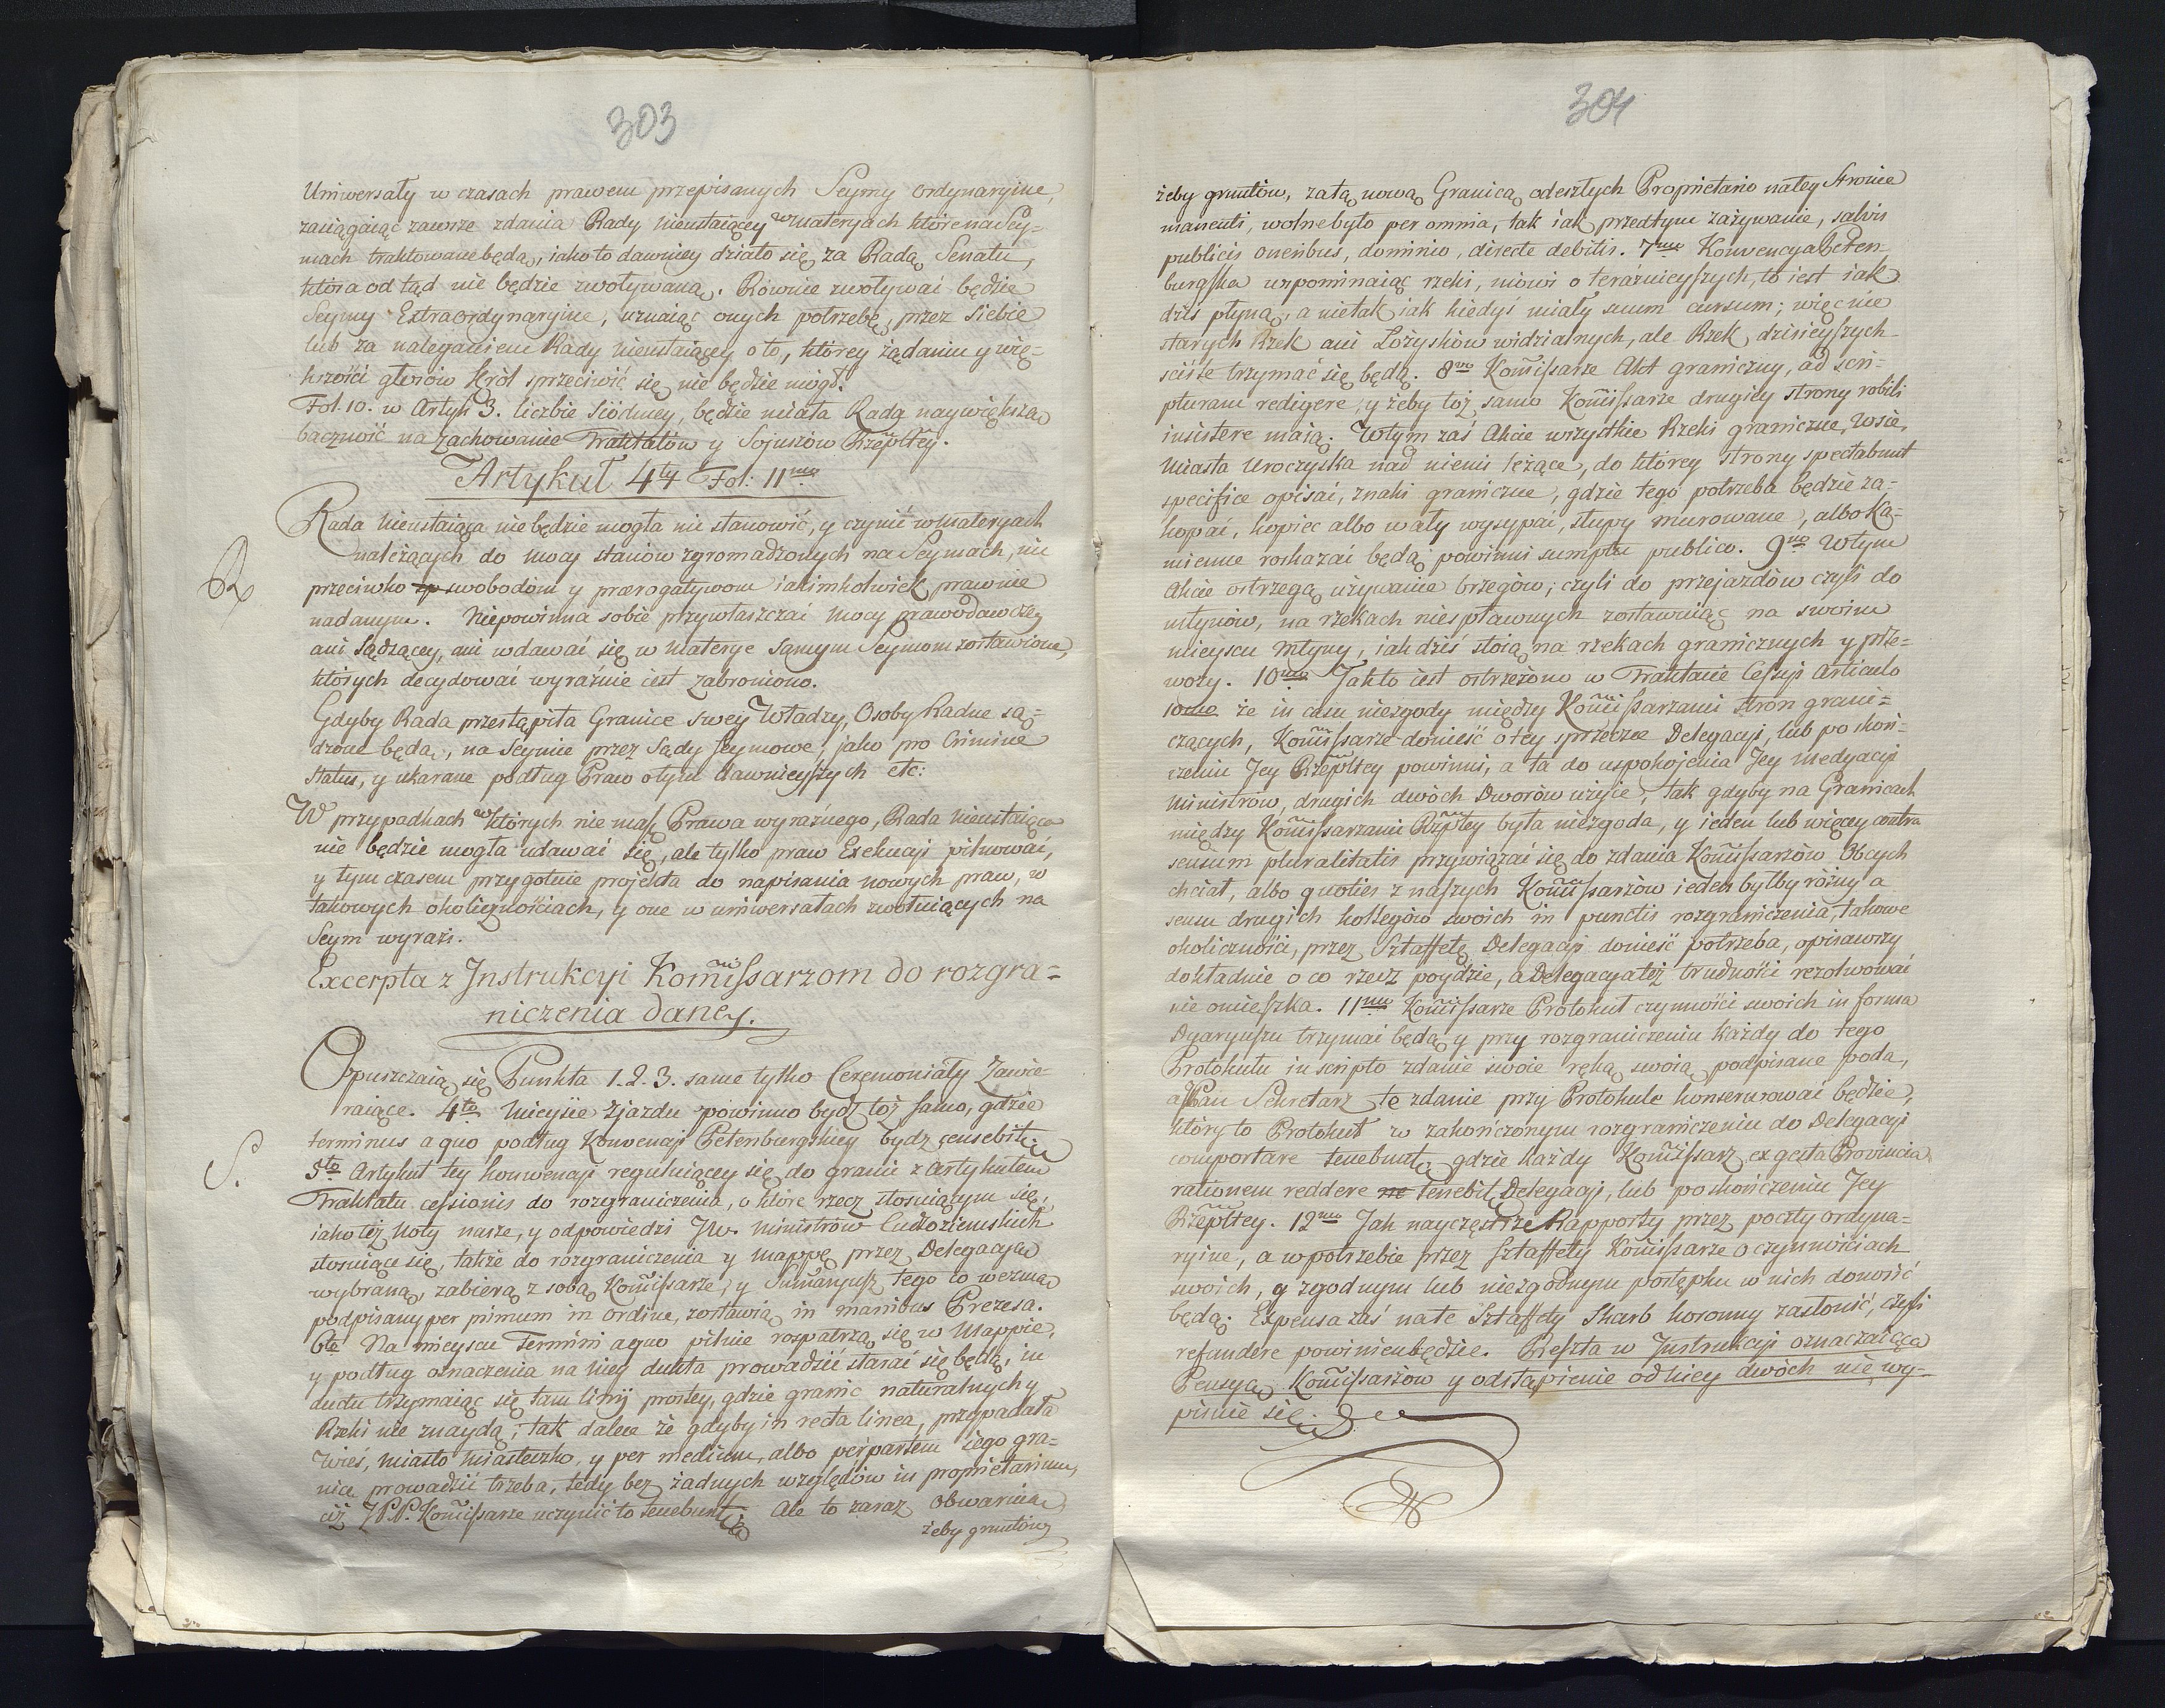 303
Uniwersały w czasach prawem przepisanych Seymy ordynaryine,
zaciągaiąc zawsze zdania Rady Nieustaiącey w Materyach które na Sey-
mach traktowane będą, iako to dawniey działo się za Radą Senatu,
która od tąd nie będzie zwoływaną. Równie zwoływać będzie
Seymy Extraordynaryine, uznaiąc onych potrzebę, przez siebie
lub za naleganiem Rady Nieustaiącey o to, którey żądaniu y wię-
kszości głosów Król sprzeciwić się nie będzie mógł.
Fol. 10. w Artyk 3. liczbie siódmey, będzie miała Rada naywiększą
baczność na zachowanie Traktatów y Sojuszów Rzepltey.
Artykuł 4ty Fol: 11mo
Rada Nieustaiąca nie będzie mogła nic stanowić, y czynić w Materyach
należących do mocy stanów zgromadzonych na Seymach, nic
R
przeciwko swobodom y prærogatywom iakimkolwiek prawnie
nadanym. Niepowinna sobie przywłaszczać Mocy prawodawczey
ani Sądzącey, ani wdawać się w Materye samym Seymom zostawione,
których decydować wyraźnie iest zabroniono.
Gdyby Rada przestąpiła Granice swey Władzy, Osoby Radne są-
dzone będą, na Seymie przez Sądy Seymowe, jako pro Crimine
Status, y ukarane podług Praw o tym dawnieyszych etc:
W przypadkach w których nie masz Prawa wyraźnego, Rada Nieustaiąca
nie będzie mogła udawać się, ale tylko praw Exekucyi pilnować,
y tym czasem przygotuie projekta do napisania nowych praw, w
takowych okolicznościach, y one w uniwersałach zwołuiących na
Seym wyrazi.
Excerpta z Jnstrukcyi Kommissarzom do rozgra-
niczenia daney.
Opuszczaią się Punkta 1.2.3. same tylko Ceremoniały Zawie-
raiące. 4to Mieysce Zjazdu powinno bydź toż samo, gdzie
terminus a quo podług Konwencyi Petersburgskiey bydź censebit.
S.
5to Artykuł tey konwencyi reguluiącey się do granic z artykułem
Traktatu cessionis do rozgraniczenia, o które rzecz stosuiącym się,
iako też Noty nasze, y odpowiedzi JW. Ministrów Cudzoziemskich
stosuiące się, także do rozgraniczenia y Mappę przez Delegacyą
wybraną, zabierą z sobą Kommissarze, y Summaryusz tego co wezmą
podpisany per primum in ordine, zostawią in manibus Prezesa.
6to Na mieyscu Termini a quo pilnie rozpatrzą się w Mappie,
y podług oznaczenia na niey dukta prowadzić starać się będą, in
ductu trzymaiąc się tam linij prostey, gdzie granic naturalnych y
Rzeki nie znaydą, tak dalece że gdyby in recta linea, przypadała
Wieś, Miasto Miasteczko, y per medium, albo per partem iego gra-
nicę prowadzić trzeba, tedy bez żadnych względów in proprietarium,
ciż JPP. Kommissarze uczynić to tenebunt. Ale to zaraz obwaruią
żeby gruntów
304
żeby gruntów, za tą nową Granicą odeszłych Proprietario na tey Stronie
manenti, wolne było per omnia, tak iak przedtym zażywanie, salvis
publicis oneribus, dominio, directe debitis. 7mo Konwencya Peters-
burgska wspominaiąc rzeki, mówi o teraźnieyszych, to iest iak
dziś płyną, a nie tak iak kiedyś miały suum cursum; więc nie
starych Rzek ani Łożysków widzialnych, ale Rzek dzisieyszych
sciśle trzymać się będą. 8vo Kommissarze Akt graniczny, ad scri-
pturam redigere, y żeby toż samo Kommissarze drugiey strony robili
insistere maią. W tym zaś Akcie wszystkie Rzeki graniczne, Wsie,
Miasta Uroczyska nad niemi leżące, do którey strony spectabunt
specifice opisać, znaki graniczne, gdzie tego potrzeba będzie za-
kopać, kopiec albo wały wysypać, słupy murowane, albo Ka-
mienne roskazać będą powinni sumptu publico. 9no W tym
Akcie ostrzegą używanie brzegów, czyli do przejazdów czyli do
młynów, na rzekach niespławnych zostawuiąc na swoim
mieyscu Młyny, iak dziś stoią na rzekach granicznych y prze-
wozy. 10mo Jako to iest ostrzeżono w Traktacie Cessyi Articulo
10mo że in casu niezgody między Kommissarzami stron grani-
czących, Kommissarze donieść o tey sprzeczce Delegacyi, lub po skoń-
czeniu Jey Rzepltey powinni, a ta do uspokojenia Jey Medyacyi
Ministrów, drugich dwóch Dworów użyie, tak gdyby na Granicach
między Kommissarzami Rzpltey była niezgoda, y ieden lub więcey contra
sensum pluralitatis przywiązać się do zdania Kommissarzów Obcych
chciał, albo quoties z naszych Kommissarzów ieden byłby różny a
sensu drugich kollegów swoich in punctis rozgraniczenia, takowe
okoliczności, przez Sztaffetę Delegacyi donieść potrzeba, opisawszy
dokładnie o co rzecz poydzie, a Delegacya też trudności rezolwować
nie omieszka. 11mo Kommissarze Protokuł czynności swoich in forma
Dyaryuszu trzymać będą y przy rozgraniczeniu każdy do tego
Protokułu in scripto zdanie swoie ręką swoią podpisane poda,
a Pan Sekretarz te zdanie przy Protokule konserwować będzie,
który to Protokuł w zakończonym rozgraniczeniu do Delegacyi
comportare tenebunt, gdzie każdy Kommissarz ex gesta Provincia
rationem reddere tenebit Delegacyi, lub po skończeniu Jey
Rzepltey. 12mo Jak nayczęstsze Rapporty przez poczty ordyna-
ryine, a w potrzebie przez sztaffety Kommissarze o czynnościach
swoich, y zgodnym lub niezgodnym postępku w nich donosić
będą. Expensa zaś na te Sztaffety Skarb koronny zastąpić, czyli
refundere powinien będzie. Reszta w Jnstrukcyi oznaczaiąca
Pensyą Kommissarzów y odstąpienie od niey dwóch nie wy-
pisuie się.